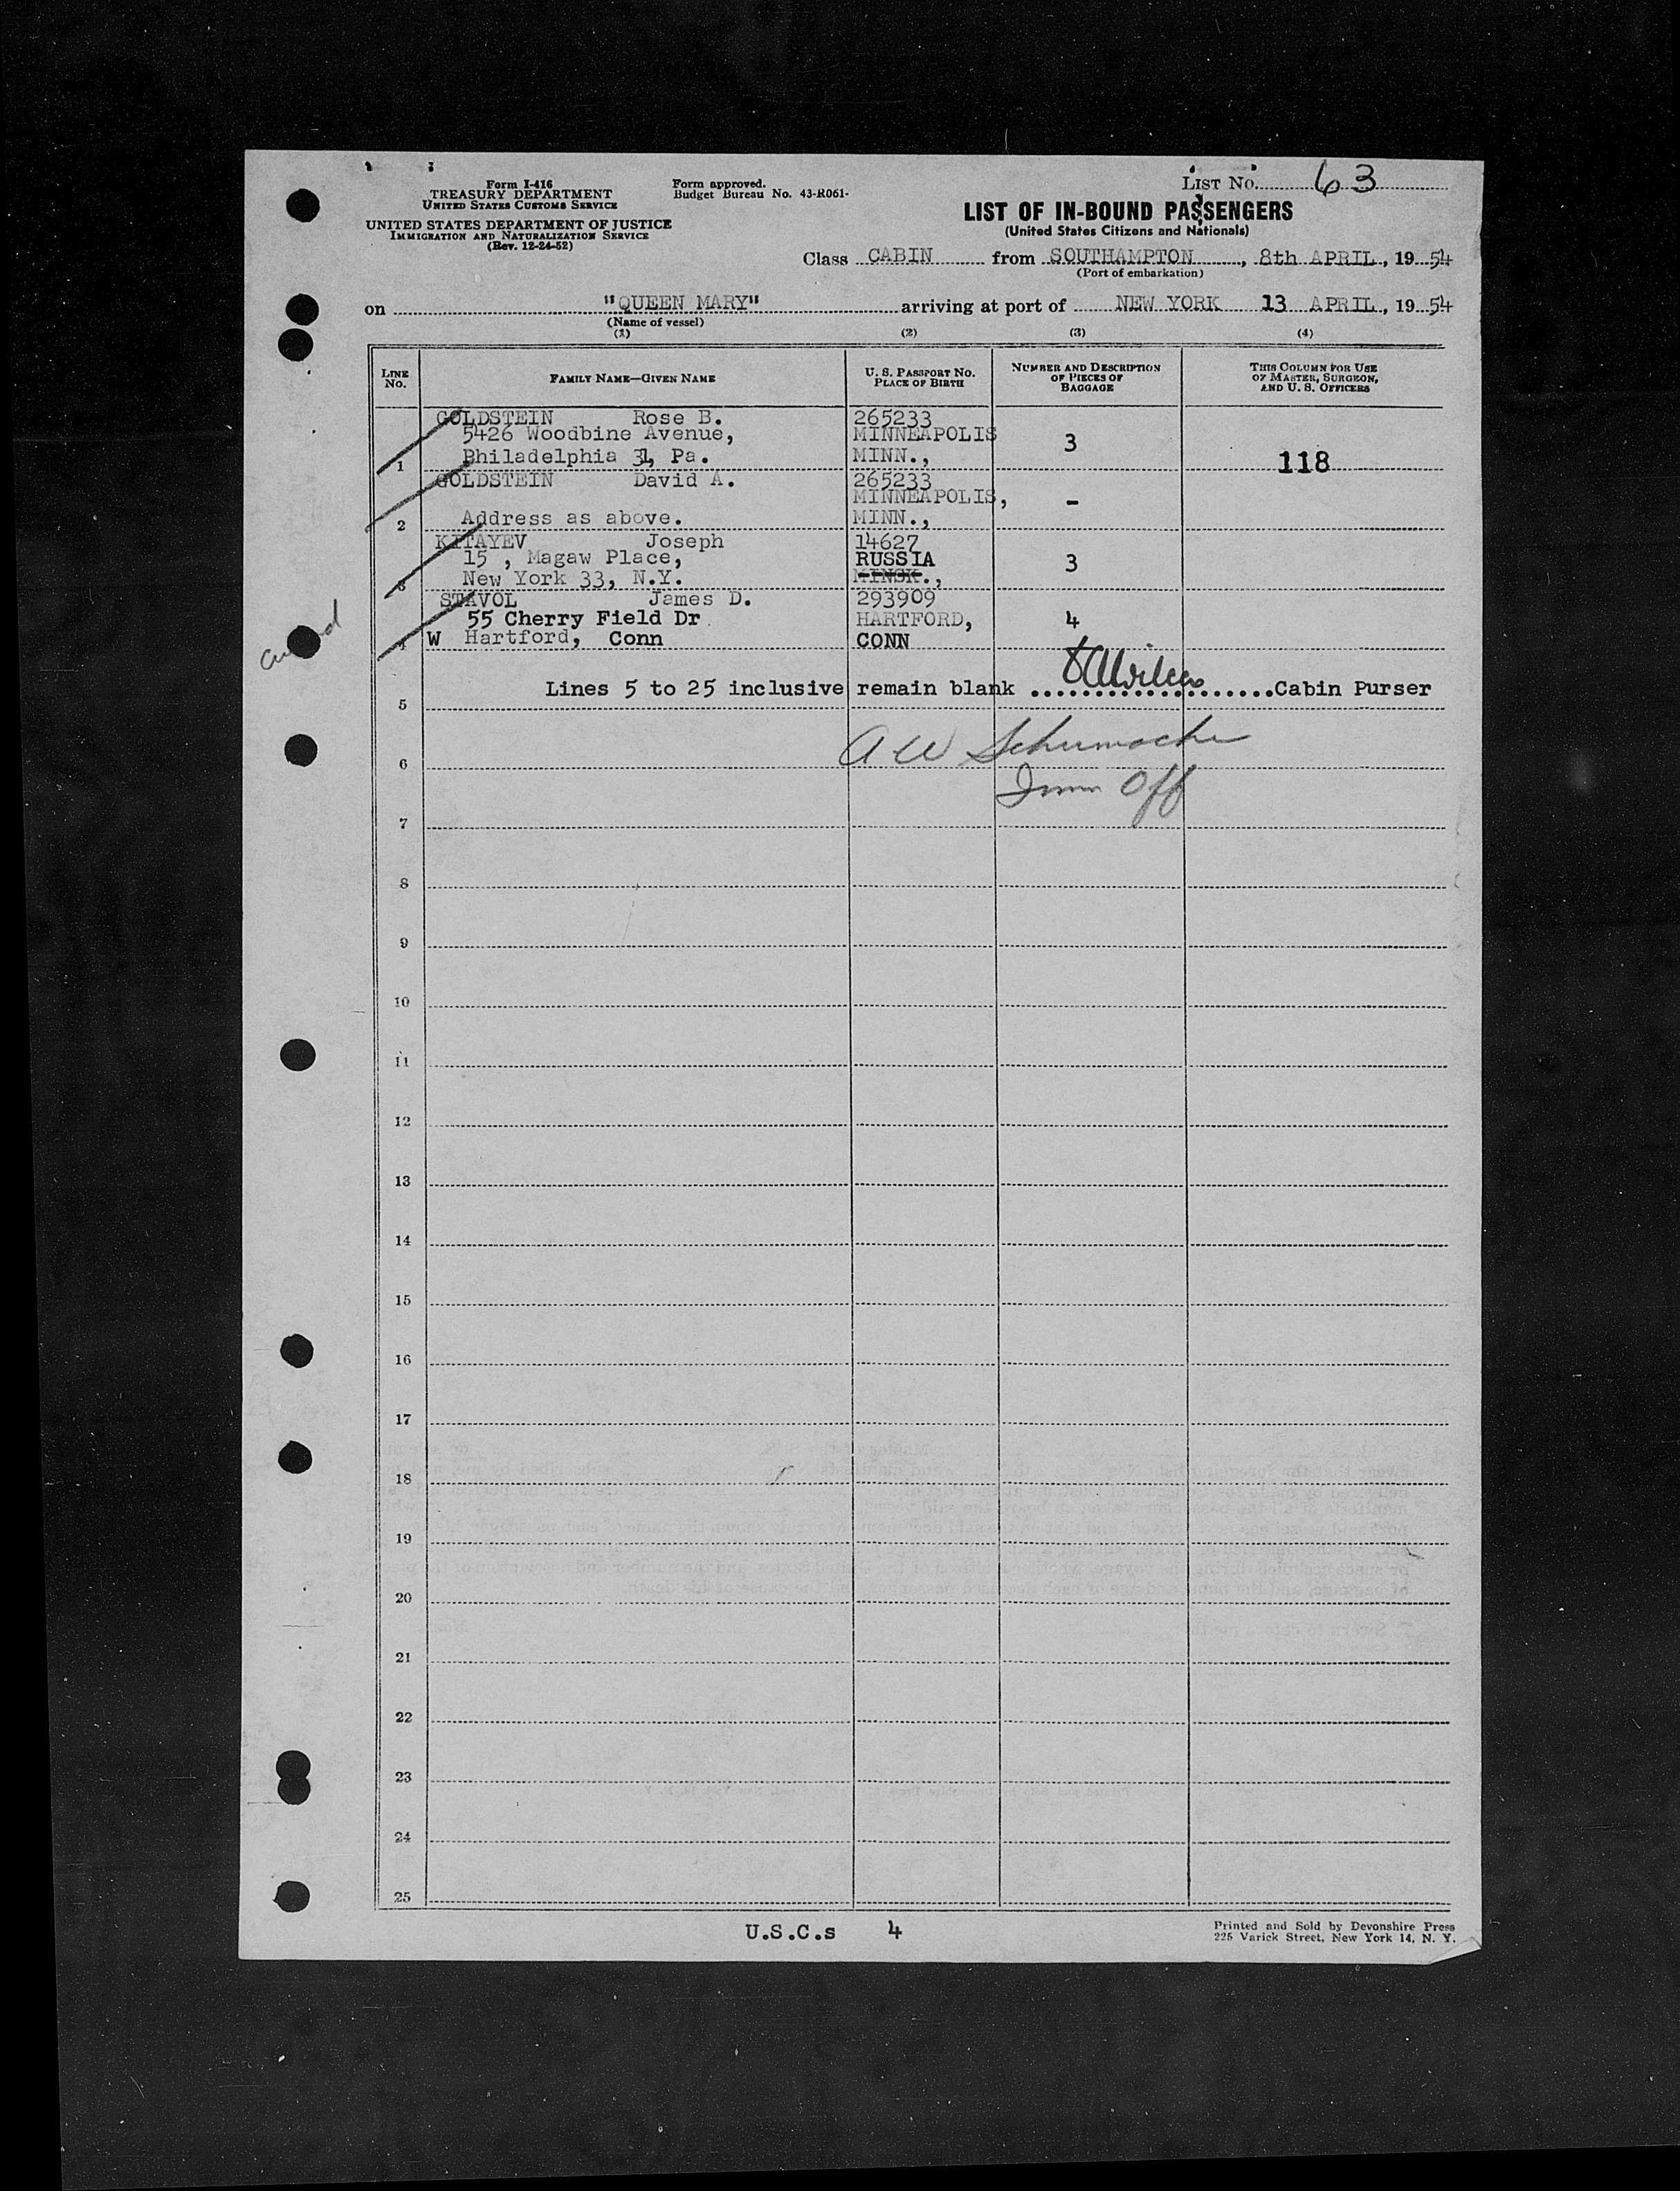 LIST No. 63
Form I-416
TREASURY DEPARTMENT
UNITED STATES CUSTOMS SERVICE
UNITED STATES DEPARTMENT OF JUSTICE
IMMIGRATION AND NATURALIZATION SERVICE
(Rev. 12-24-52)
Form approved.
Budget Bureau No. 43-R061-
LIST OF IN-BOUND PASSENGERS
(United States Citizens and Nationals)
Class CABIN from SOUTHAMPTON, 8th APRIL, 1954
(Port of embarkation)
on "QUEEN MARY" arriving at port of NEW YORK 13 APRIL, 1954
(Name of vessel)
(1) (2) (3) (4)
LINE No. FAMILY NAME—GIVEN NAME U. S. PASSPORT No. PLACE OF BIRTH NUMBER AND DESCRIPTION OF PIECES OF BAGGAGE THIS COLUMN FOR USE OF MASTER, SURGEON, AND U. S. OFFICERS
GOLDSTEIN Rose B. 265233
5426 Woodbine Avenue, MINNEAPOLIS 3
1 Philadelphia 31, Pa. MINN., 118
GOLDSTEIN David A. 265233
MINNEAPOLIS, -
2 Address as above. MINN.,
KITAYEV Joseph 14627
15 , Magaw Place, RUSSIA 3
3 New York 33, N.Y. MINSK.,
STAVOL James D. 293909
55 Cherry Field Dr. HARTFORD, 4
4 W Hartford, Conn CONN
Lines 5 to 25 inclusive remain blank ....................Cabin Purser
5
A W Schumacher
6
Imm Off
7
8
9
10
11
12
13
14
15
16
17
18
19
20
21
22
23
24
25
U.S.C.s 4
Printed and Sold by Devonshire Press
225 Varick Street, New York 14, N. Y.